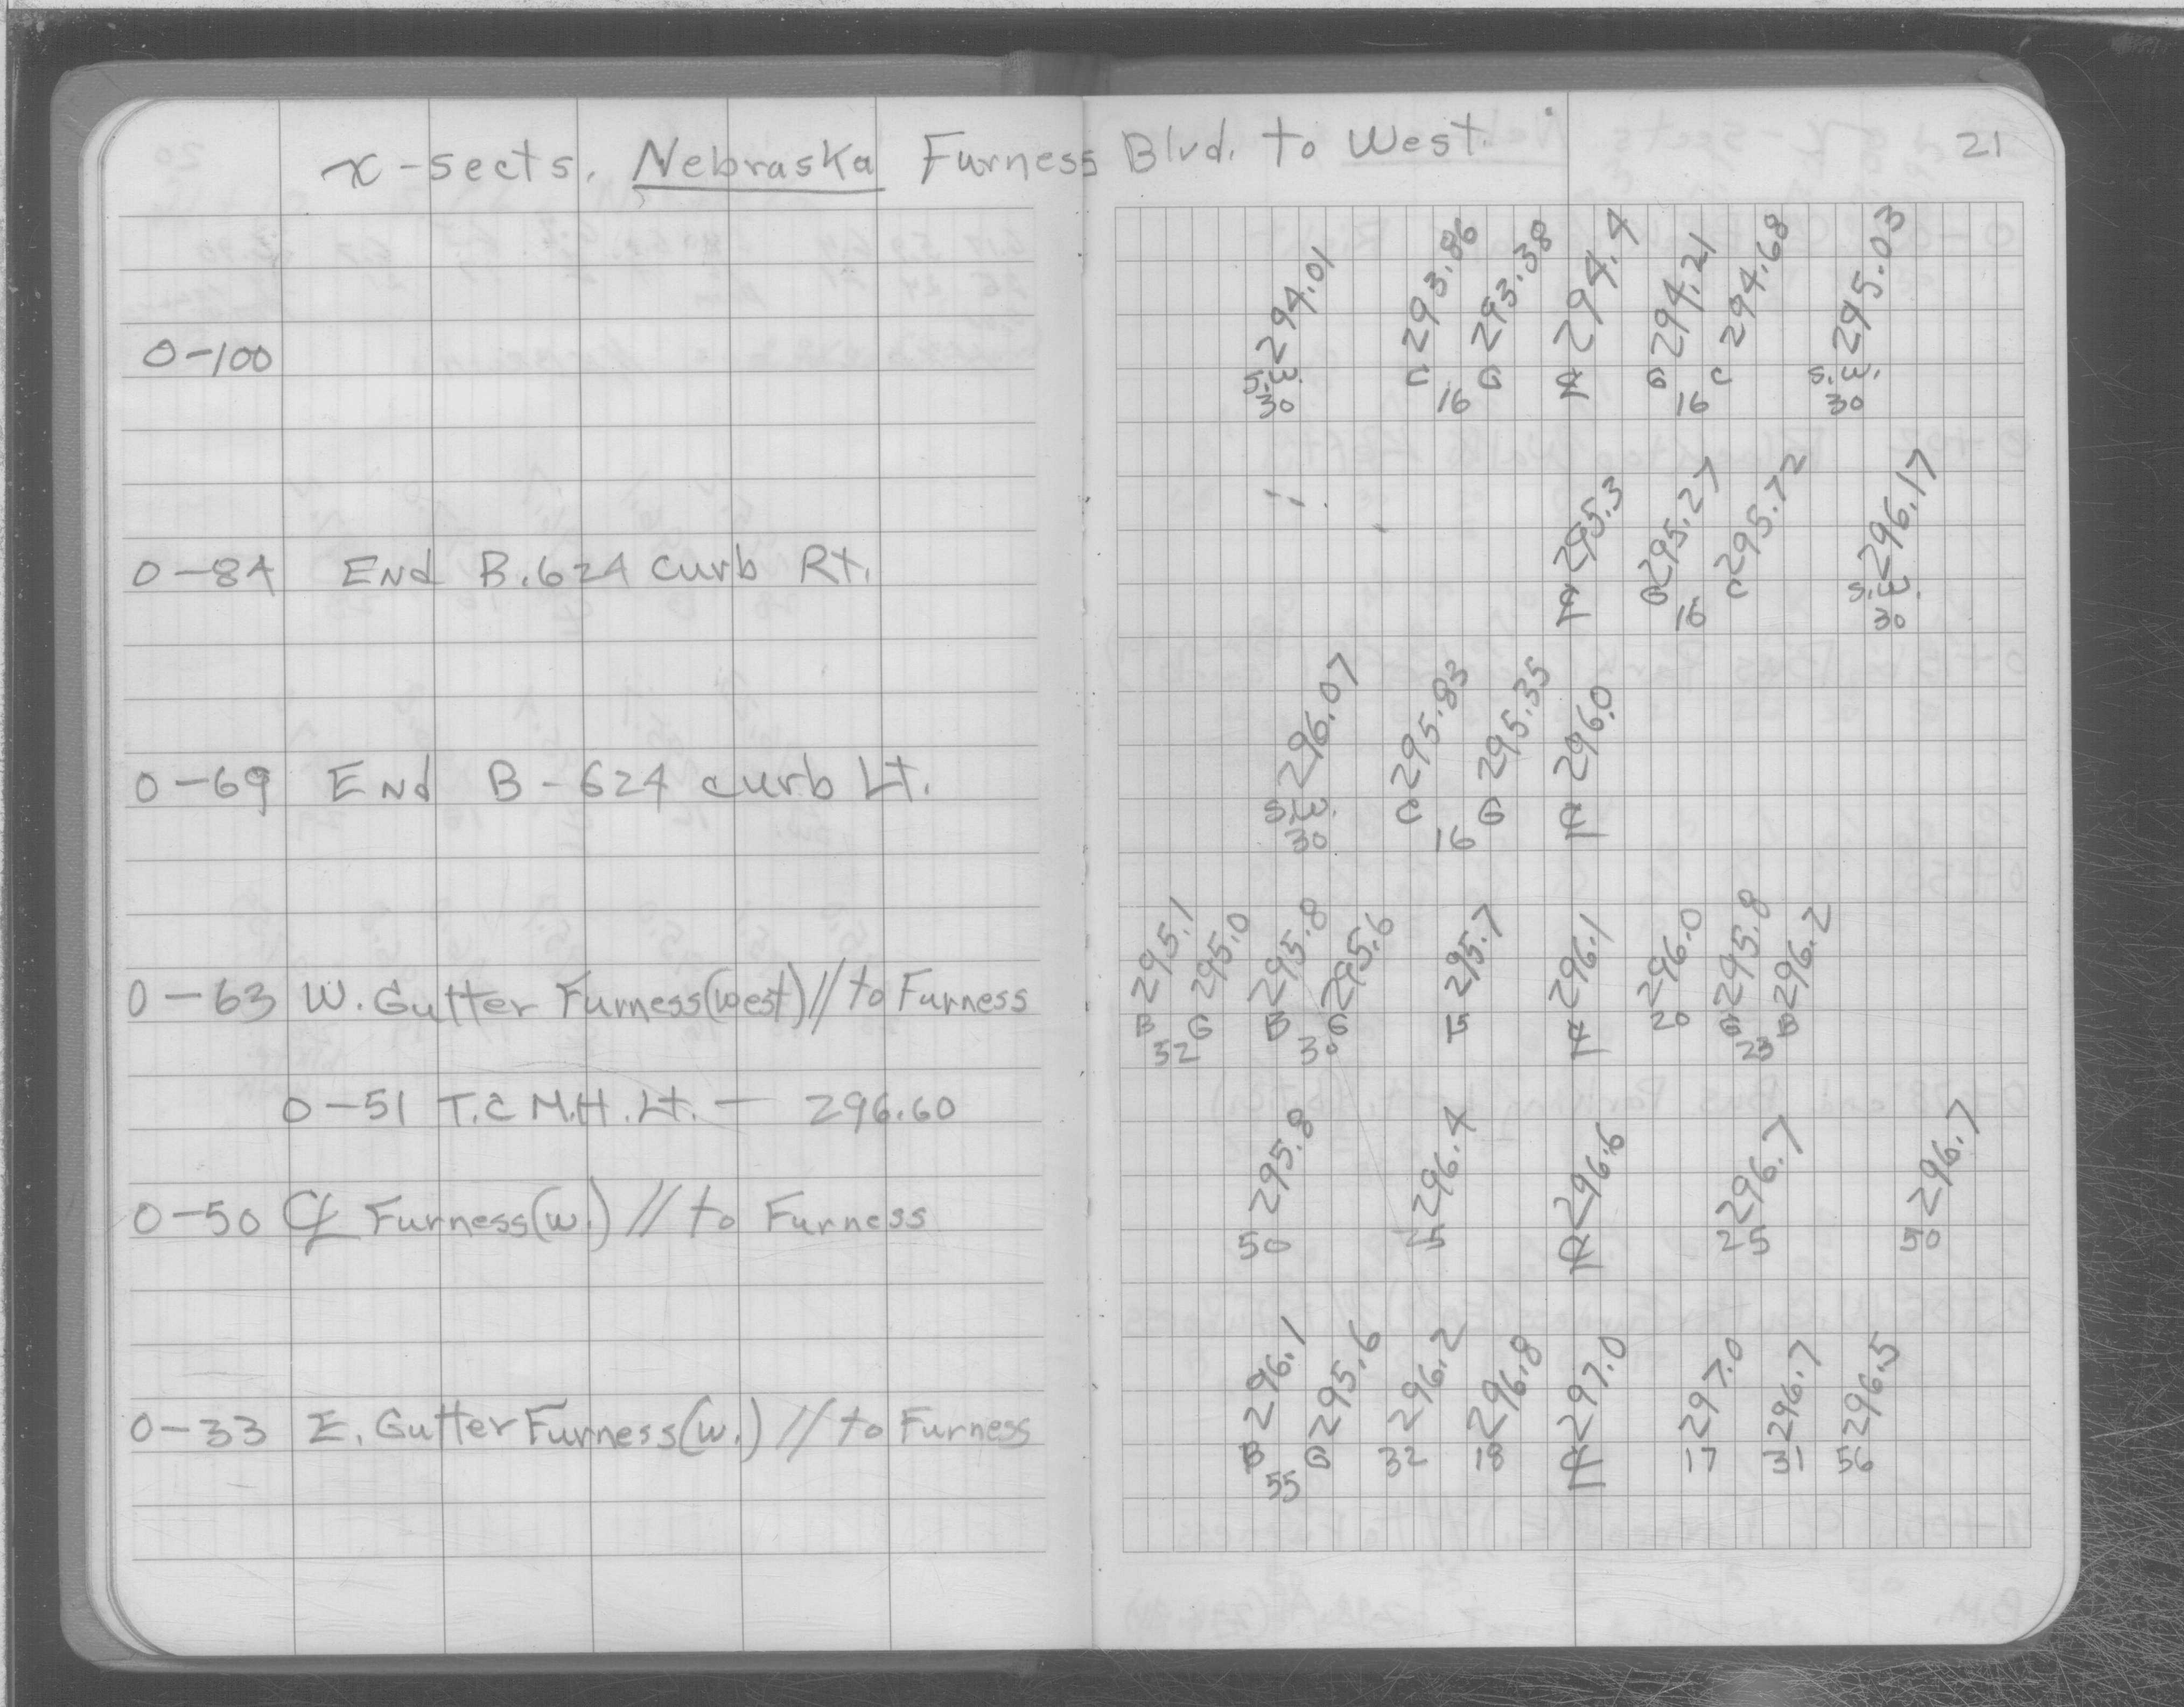 x-sects. Nebraska Furness Blvd. to West. 21
294.01 293.86 293.38 294.4 294.21 294.68 295.03
0-100 S.W. C G ℄ G C S.W.
30 16 16 30
295.3 295.27 295.72 296.17
0-84 End B.624 curb Rt. ℄ G C S.W.
16 30
296.07 295.83 295.35 296.0
0-69 End B-624 curb Lt. S.W. C G ℄
30 16
295.1 295.0 295.8 295.6 295.7 296.1 296.0 295.8 296.2
0-63 W. Gutter Furness(west) // to Furness B G B G 15 ℄ 20 G B
32 30 23
0-51 T.C M.H. Lt. - 296.60
295.8 296.4 296.6 296.7 296.7
0-50 ℄ Furness(w.) // to Furness 50 25 ℄ 25 50
296.1 295.6 296.2 296.8 297.0 297.0 296.7 296.5
0-33 E. Gutter Furness(w.) // to Furness B G 32 18 ℄ 17 31 56
55